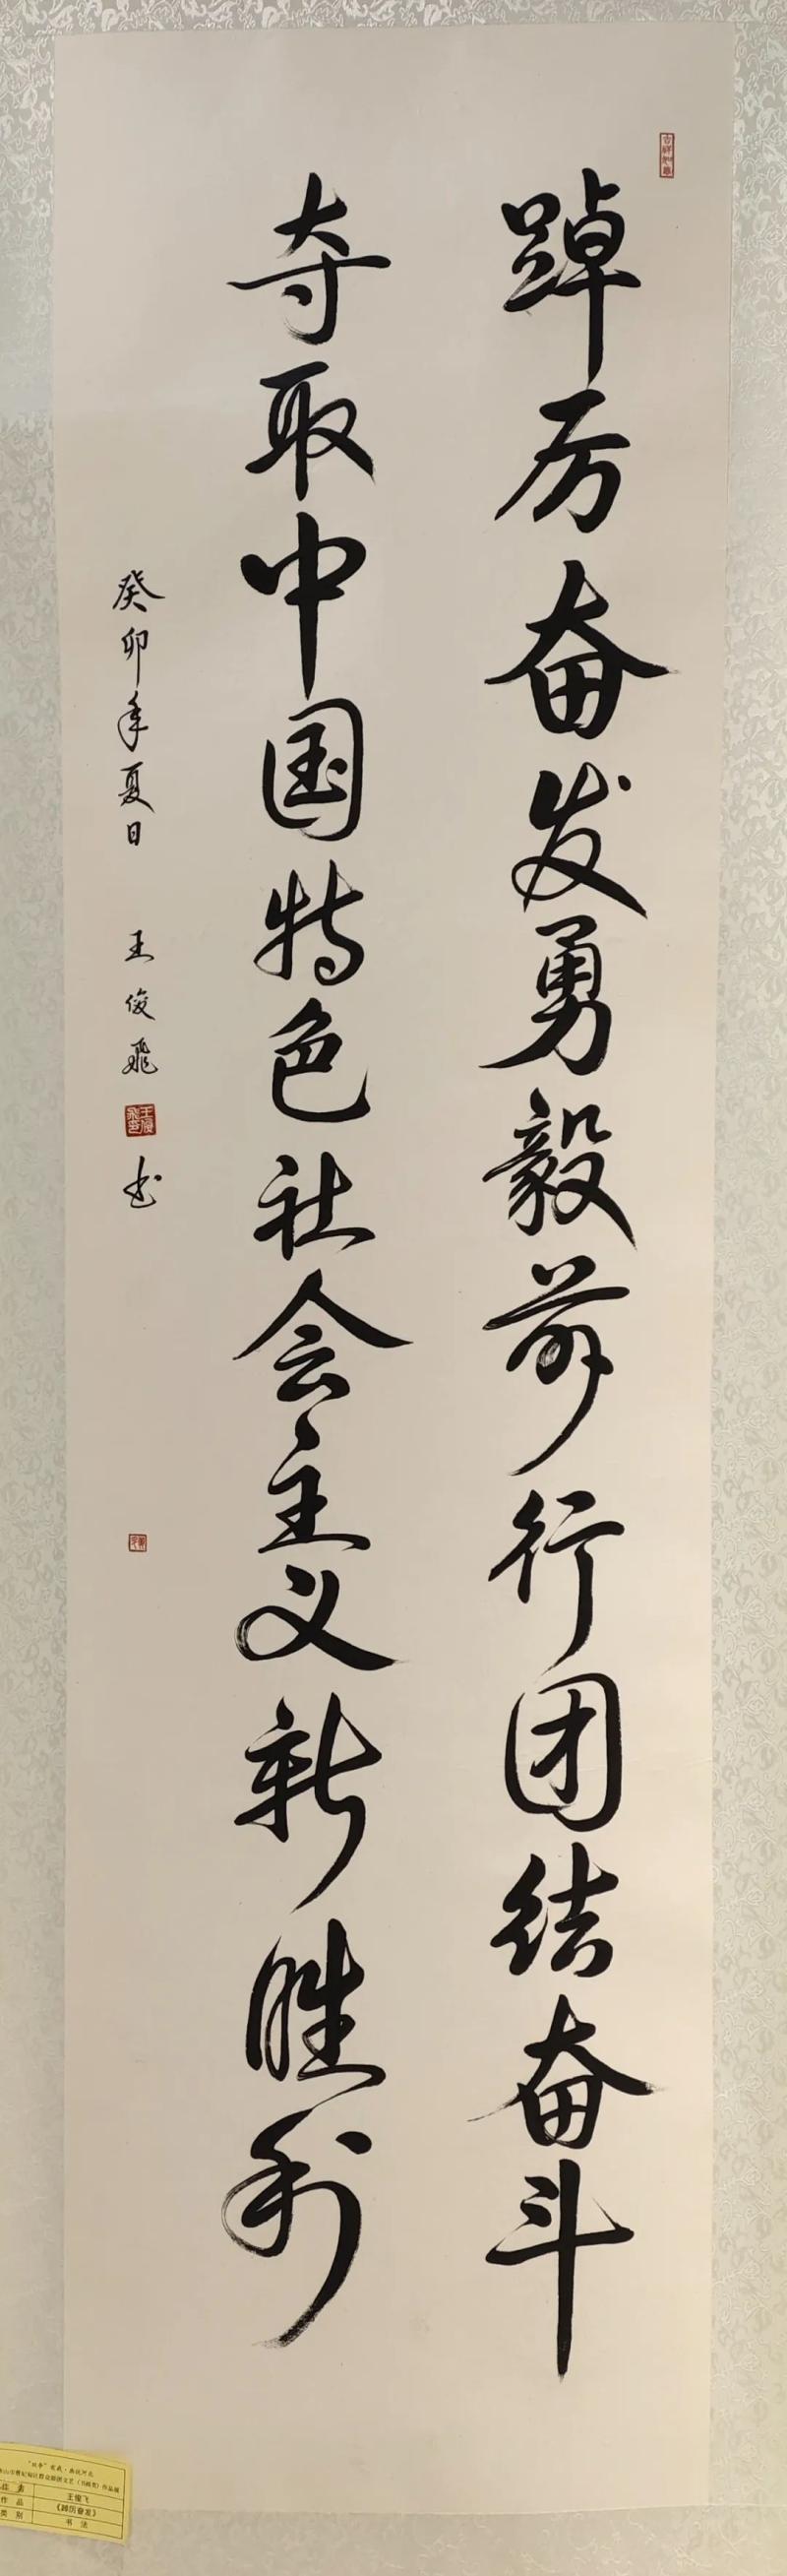 踔厉奋发勇毅前行团结奋斗
夺取中国特色社会主义新胜利
癸卯年夏日 王俊飞 书
王俊飞
作品 《踔厉奋发》
类别 书法